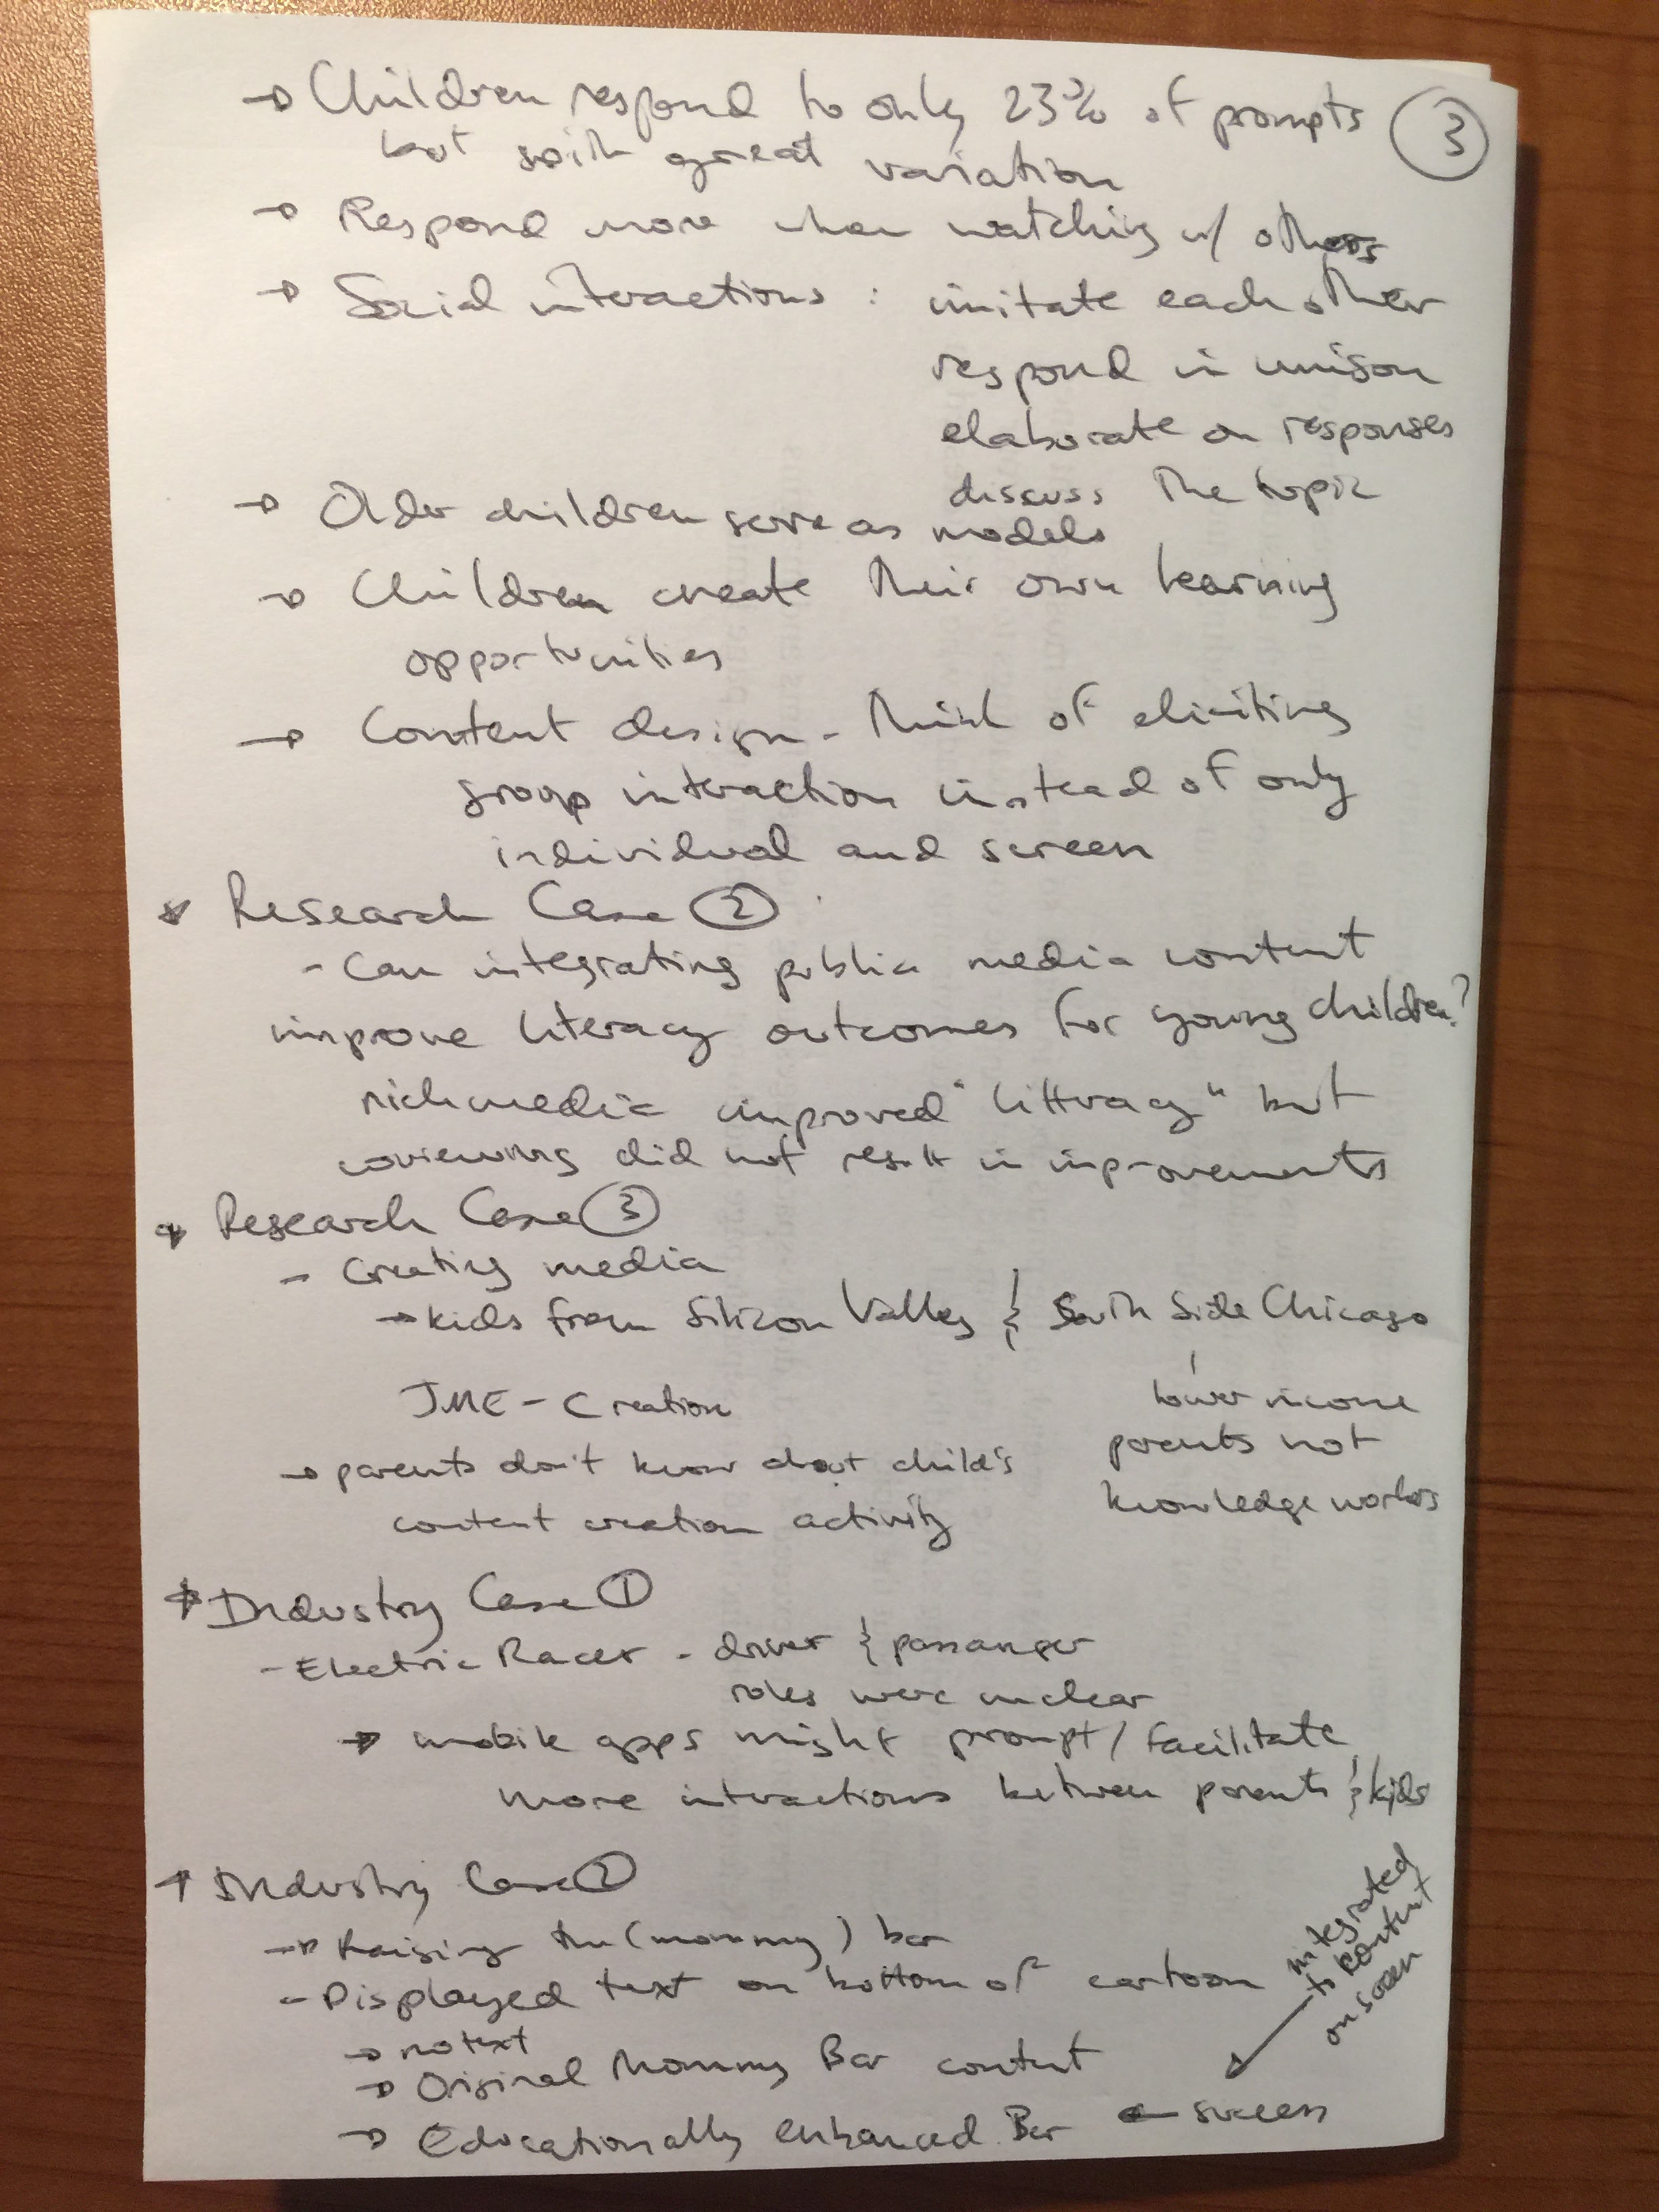 → Children respond to only 23% of prompts
③
but with great variation
→ Respond more when watching w/ others
→ Social interactions : imitate each other
respond in unison
elaborate on responses
discuss the topic
→ Older children serve as models
→ Children create their own learning
opportunities
→ Content design - think of eliciting
group interaction instead of only
individual and screen
* Research Case ②
- Can integrating public media content
improve literacy outcomes for young children?
rich media improved "litteracy" but
coviewing did not result in improvements
* Research Case ③
- Creating media
→ kids from Silicon Valley & South Side Chicago
JME - Creation
lower income
parents not
knowledge workers
→ parents don't know about child's
content creation activity
* Industry Case ①
- Electric Racer - driver & passanger
roles were unclear
→ mobile apps might prompt / facilitate
more interactions between parents & kids
* Industry Case ②
→ Raising the (mommy) bar
- Displayed text on bottom of cartoon
integrated
to content
on screen
→ no text
→ Original Mommy Bar content
→ Educationally enhanced Bar ← success